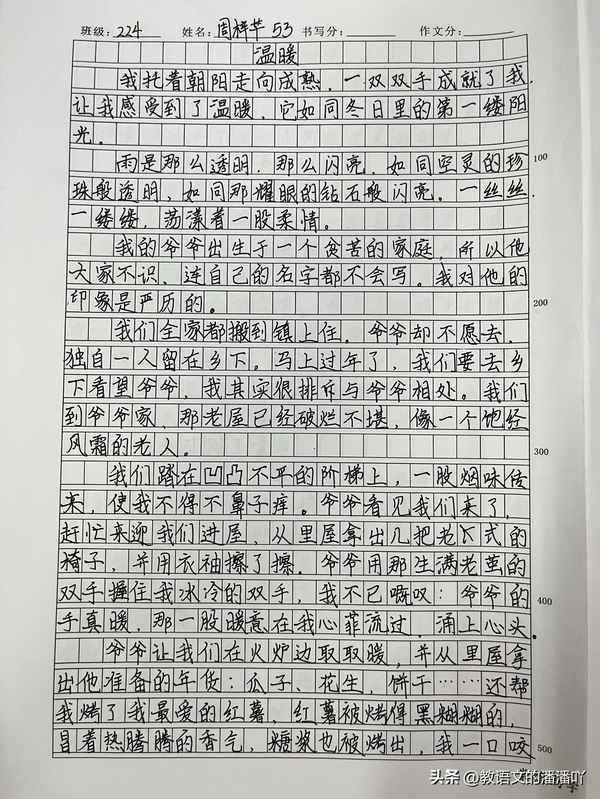 班级：224 姓名：周梓芊 53 书写分： 作文分：
温暖
我托着朝阳走向成熟，一双双手成就了我，
让我感受到了温暖，它如同冬日里的第一缕阳
光。
雨是那么透明，那么闪亮，如同空灵的珍
100
珠般透明，如同那耀眼的钻石般闪亮。一丝丝，
一缕缕，荡漾着一股柔情。
我的爷爷出生于一个贫苦的家庭，所以他
大家不识，连自己的名字都不会写。我对他的
印象是严历的。
200
我们全家都搬到镇上住，爷爷却不愿去，
独自一人留在乡下。马上过年了，我们要去乡
下看望爷爷，我其实很排斥与爷爷相处。我们
到爷爷家，那老屋已经破烂不堪，像一个饱经
风霜的老人。
300
我们踏在凹凸不平的阶梯上，一股烟味传
来，使我不得不鼻子痒。爷爷看见我们来了，
赶忙来迎我们进屋，从里屋拿出几把老式的
椅子，并用衣袖擦了擦。爷爷用那生满老茧的
双手握住我冰冷的双手，我不已嘅叹：爷爷的
400
手真暖，那一股暖意在我心菲流过，涌上心头。
爷爷让我们在火炉边取取暖，并从里屋拿
出他准备的年货：瓜子、花生，饼干……还帮
我烤了我最爱的红薯，红薯被烤得黑糊糊的，
冒着热腾腾的香气，糖浆也被烤出，我一口咬
500
头条 @教语文的潘潘吖